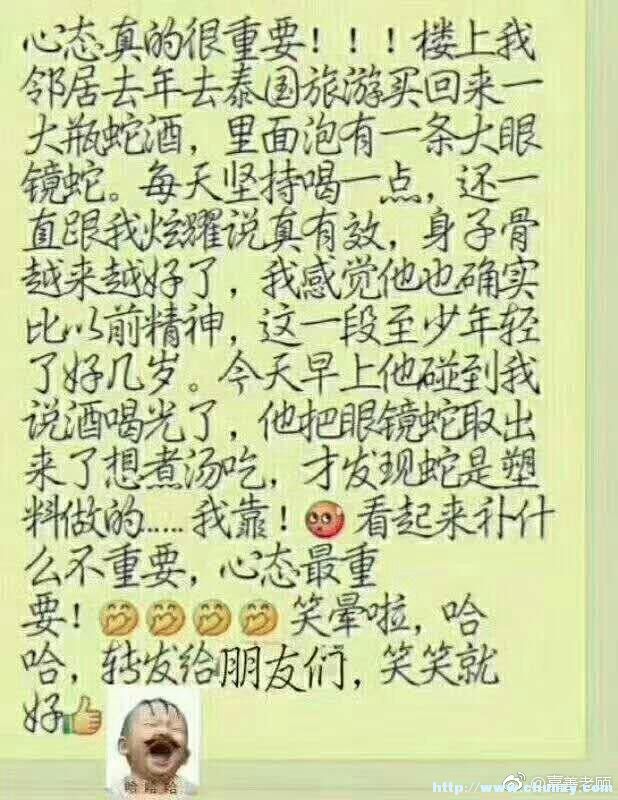 心态真的很重要！！！楼上我
邻居去年去泰国旅游买回来一
大瓶蛇酒，里面泡有一条大眼
镜蛇。每天坚持喝一点，还一
直跟我炫耀说真有效，身子骨
越来越好了，我感觉他也确实
比以前精神，这一段至少年轻
了好几岁。今天早上他碰到我
说酒喝光了，他把眼镜蛇取出
来了想煮汤吃，才发现蛇是塑
料做的.....我靠！😡看起来补什
么不重要，心态最重
要！🤭🤭🤭🤭笑晕啦，哈
哈，转发给朋友们，笑笑就
好👍
哈哈哈
@嘉善老师
http://www.chunzy.com